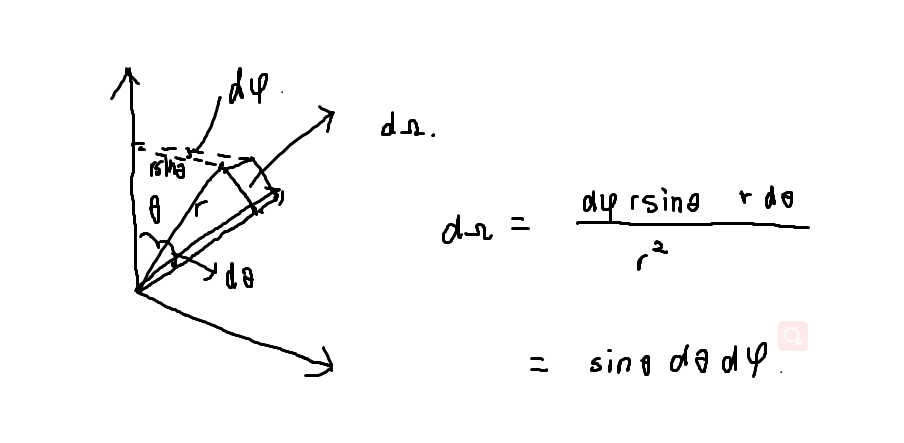 dφ.
dΩ.
rsinθ
θ
r
dθ
dΩ = dφ rsinθ r dθ
r²
= sinθ dθ dφ.